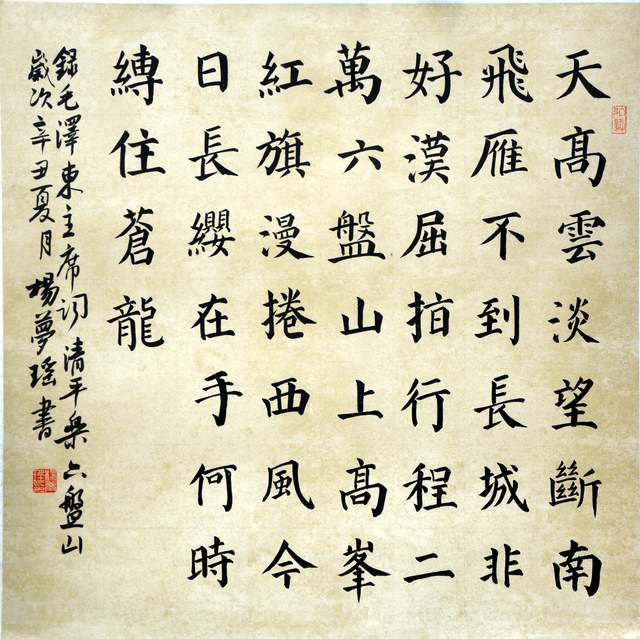 天髙雲淡望斷南
飛雁不到長城非
好漠屈指行程二
萬六盤山上髙峯
紅旗漫捲西風今
日長纓在手何時
縛住蒼龍
錄毛澤東主席詞清平樂六盤山
歲次辛丑夏月楊夢瑶書